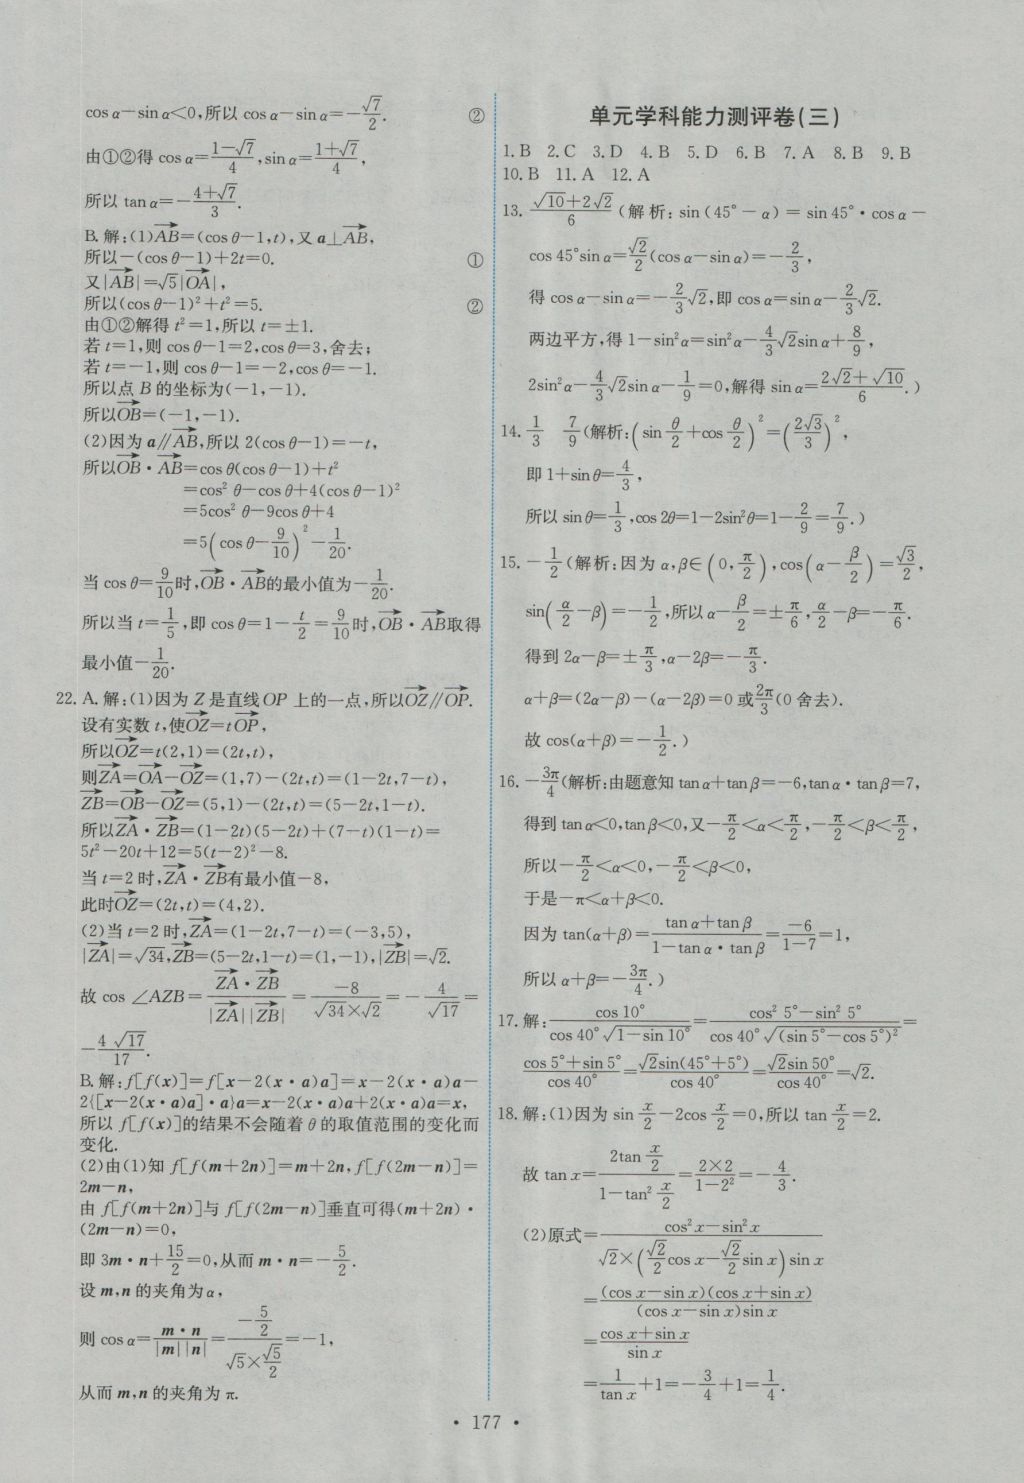 cos α−sin α<0,所以 cos α−sin α=−√7/2. ②
由①②得 cos α=(1−√7)/4,sin α=(1+√7)/4,
所以 tan α=−(4+√7)/3.
B.解:(1)AB→=(cos θ−1,t),又 a⊥AB→,
所以−(cos θ−1)+2t=0. ①
又|AB→|=√5|OA→|,
所以(cos θ−1)²+t²=5. ②
由①②解得 t²=1,所以 t=±1.
若 t=1,则 cos θ−1=2,cos θ=3,舍去;
若 t=−1,则 cos θ−1=−2,cos θ=−1.
所以点 B 的坐标为(−1,−1).
所以OB→=(−1,−1).
(2)因为 a∥AB→,所以 2(cos θ−1)=−t,
所以OB→·AB→=cos θ(cos θ−1)+t²
=cos² θ−cos θ+4(cos θ−1)²
=5cos² θ−9cos θ+4
=5(cos θ−9/10)²−1/20.
当 cos θ=9/10时,OB→·AB→的最小值为−1/20.
所以当 t=1/5,即 cos θ=1−t/2=9/10时,OB→·AB→取得
最小值−1/20.
22. A.解:(1)因为 Z 是直线OP 上的一点,所以OZ→∥OP→.
设有实数 t,使OZ→=tOP→,
所以OZ→=t(2,1)=(2t,t),
则ZA→=OA→−OZ→=(1,7)−(2t,t)=(1−2t,7−t),
ZB→=OB→−OZ→=(5,1)−(2t,t)=(5−2t,1−t).
所以ZA→·ZB→=(1−2t)(5−2t)+(7−t)(1−t)=
5t²−20t+12=5(t−2)²−8.
当 t=2 时,ZA→·ZB→有最小值−8,
此时OZ→=(2t,t)=(4,2).
(2)当 t=2 时,ZA→=(1−2t,7−t)=(−3,5),
|ZA→|=√34,ZB→=(5−2t,1−t)=(1,−1),|ZB→|=√2.
故 cos ∠AZB=(ZA→·ZB→)/(|ZA→||ZB→|)=−8/(√34×√2)=−4/√17=
−4√17/17.
B.解:f[f(x)]=f[x−2(x·a)a]=x−2(x·a)a−
2{[x−2(x·a)a]·a}a=x−2(x·a)a+2(x·a)a=x,
所以 f[f(x)]的结果不会随着 θ 的取值范围的变化而
变化.
(2)由(1)知 f[f(m+2n)]=m+2n,f[f(2m−n)]=
2m−n,
由 f[f(m+2n)]与 f[f(2m−n)]垂直可得(m+2n)·
(2m−n)=0,
即 3m·n+15/2=0,从而 m·n=−5/2.
设 m,n 的夹角为 α,
则 cos α=(m·n)/(|m||n|)=(−5/2)/(√5×√5/2)=−1,
从而 m,n 的夹角为 π.
单元学科能力测评卷(三)
1. B 2. C 3. D 4. B 5. D 6. B 7. A 8. B 9. B
10. B 11. A 12. A
13. (√10+2√2)/6(解析:sin(45°−α)=sin 45°·cos α−
cos 45°sin α=√2/2(cos α−sin α)=−2/3,
得 cos α−sin α=−2/3√2,即 cos α=sin α−2/3√2.
两边平方,得 1−sin²α=sin²α−4/3√2sin α+8/9,
2sin²α−4/3√2sin α−1/9=0,解得 sin α=(2√2+√10)/6.)
14. 1/3 7/9(解析:(sin θ/2+cos θ/2)²=(2√3/3)²,
即 1+sin θ=4/3,
所以 sin θ=1/3,cos 2θ=1−2sin²θ=1−2/9=7/9.)
15. −1/2(解析:因为 α,β∈(0,π/2),cos(α−β/2)=√3/2,
sin(α/2−β)=−1/2,所以 α−β/2=±π/6,α/2−β=−π/6.
得到 2α−β=±π/3,α−2β=−π/3.
α+β=(2α−β)−(α−2β)=0 或2π/3(0 舍去).
故 cos(α+β)=−1/2.)
16. −3π/4(解析:由题意知 tan α+tan β=−6,tan α·tan β=7,
得到 tan α<0,tan β<0,又−π/2<α<π/2,−π/2<β<π/2,
所以−π/2<α<0,−π/2<β<0,
于是−π<α+β<0.
因为 tan(α+β)=(tan α+tan β)/(1−tan α·tan β)=−6/(1−7)=1,
所以 α+β=−3π/4.)
17. 解:cos 10°/(cos 40°√(1−sin 10°))=(cos² 5°−sin² 5°)/(cos 40°√((sin 5°−cos 5°)²))=
(cos 5°+sin 5°)/cos 40°=√2sin(45°+5°)/cos 40°=√2sin 50°/cos 40°=√2.
18. 解:(1)因为 sin x/2−2cos x/2=0,所以 tan x/2=2.
故 tan x=(2tan x/2)/(1−tan² x/2)=(2×2)/(1−2²)=−4/3.
(2)原式=(cos²x−sin²x)/(√2×(√2/2cos x−√2/2sin x)sin x)
=(cos x−sin x)(cos x+sin x)/((cos x−sin x)sin x)
=(cos x+sin x)/sin x
=1/tan x+1=−3/4+1=1/4.
· 177 ·